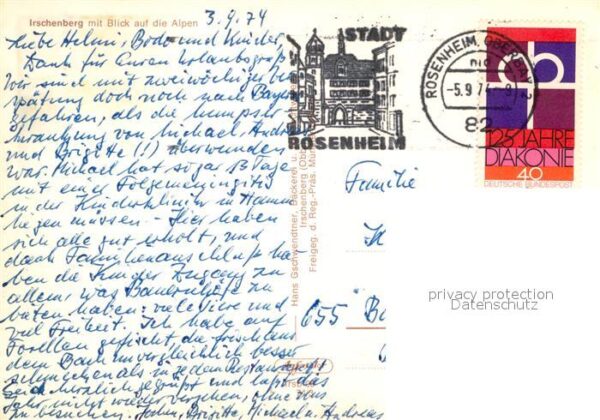 Irschenberg mit Blick auf die Alpen
3.9.74
Liebe Helmi, Bodo und Kinder,
Dank für Euren Urlaubsgruß
Wir sind mit zweiwöchiger Ver
spätung doch noch nach Bayern
gefahren, als die Mumpser-
krankung von Michael, Andreas
und Brigitte (!) überwunden
war. Michael hat sogar 13 Tage
mit einer
in der Kinderklinik in Hamm
liegen müssen. Hier haben
sich alle gut erholt, und
dank Familienanschluß ha-
ben die Kinder Zugang zu
allem, was Bauernhöfe zu
bieten haben: viele Tiere und
viel Freiheit. Ich habe auf
Forellen gefischt, die frisch aus
dem Bach unvergleichlich besser
schmecken als in jedem Restaurant!
Seid herzlichst gegrüßt und laßt das
Jahr nicht wieder verstreichen, ohne uns
zu besuchen. Brigitte, Michael u. Andreas
Hans Gschwendtner, Bäckerei u.
Irschenberg (Obb
Freigeg. d. Reg.-Präs. Mün
STADT
ROSENHEIM
ROSENHEIM, OBERBAY
-5.9.74-9
82
125 JAHRE
DIAKONIE
40
DEUTSCHE BUNDESPOST
Familie
K
655 Ba
privacy protection
Datenschutz